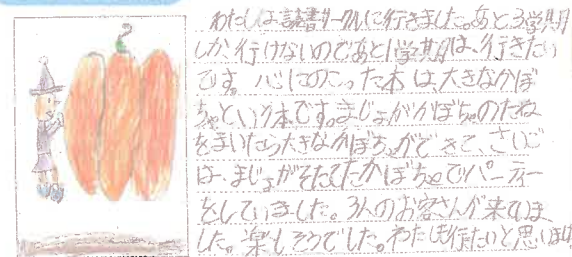 わたしは読書サークルに行きました。あと3学期
しか行けないのであと1学期は、行きたい
です。心にのこった本は大きなかぼ
ちゃという本です。まじょがかぼちゃのたね
をまいたら大きなかぼちゃができて、さいご
は、まじょがそだてたかぼちゃでパーティー
をしていました。3人のお客さんが来ていま
した。楽しそうでした。わたしも行たいと思いまし